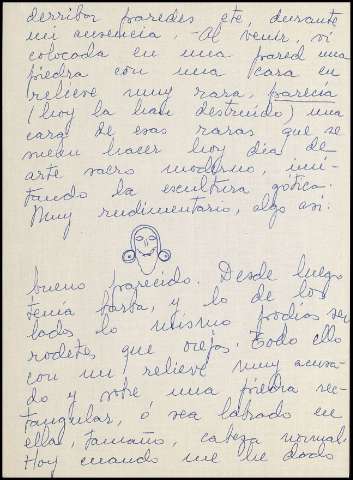 derribar paredes etc, durante
mi ausencia. - Al venir, vi
colocada en una pared una
piedra con una cara en
relieve muy rara, parecía
(hoy la han destruido) una
cara de esas raras que se
suelen hacer hoy día de
arte sacro moderno, imi-
tando la escultura gótica.
Muy rudimentario, algo así:
bueno parecido. Desde luego
tenía barba, y lo de los
lados lo mismo podías ser
rodetes que orejas. Todo ello
con un relieve muy acusa-
do y sobre una piedra rec-
tangular, ó sea labrado en
ella, tamaño, cabeza normal.
Hoy cuando me he dado